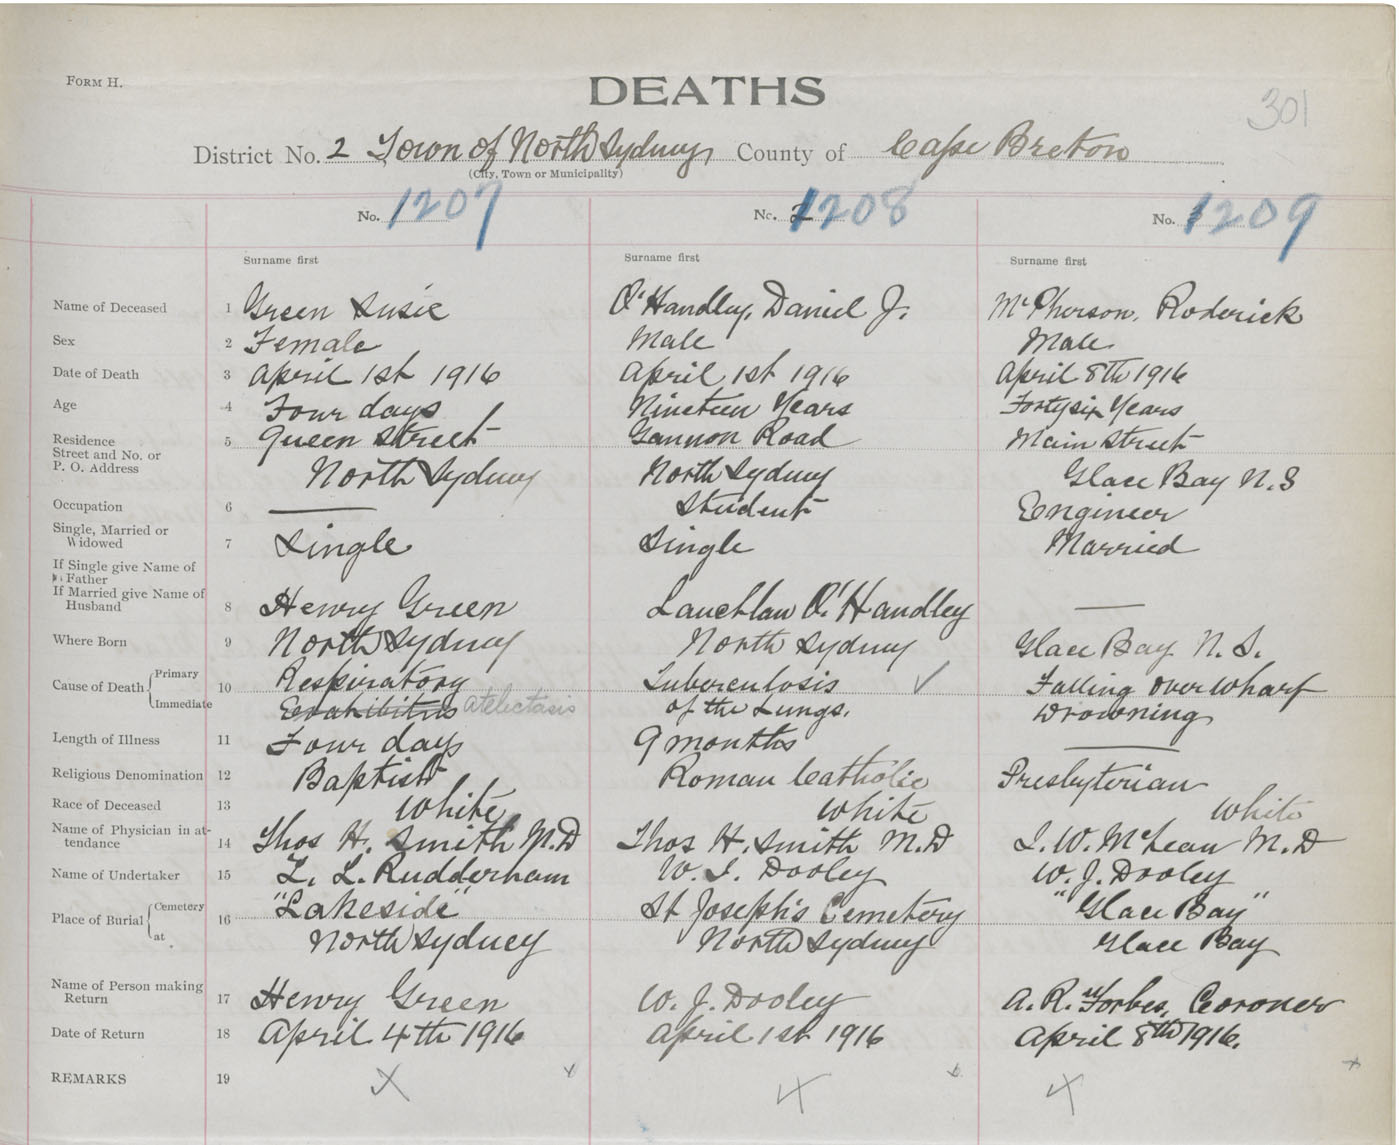 FORM H.
DEATHS
301
District No. 2 Town of North Sydney County of Cape Breton
(City, Town or Municipality)
No. 1207 No. 2 1208 No. 3 1209
Surname first Surname first Surname first
Name of Deceased 1 Green Susie O'Handley, Daniel J. McPherson, Roderick
Sex 2 Female Male Male
Date of Death 3 April 1st 1916 April 1st 1916 April 8th 1916
Age 4 Four days Nineteen Years Fortysix Years
Residence 5 Queen Street Gannon Road Main Street
Street and No. or
P. O. Address North Sydney North Sydney Glace Bay N.S
Occupation 6 — Student Engineer
Single, Married or
Widowed 7 Single Single Married
If Single give Name of
Father
If Married give Name of
Husband 8 Henry Green Lauchlan O'Handley —
Where Born 9 North Sydney North Sydney Glace Bay N.S.
Cause of Death { Primary 10 Respiratory Tuberculosis ✓ Falling over wharf
Immediate atelectasis of the Lungs. Drowning
Length of Illness 11 Four days 9 months —
Religious Denomination 12 Baptist Roman Catholic Presbyterian
Race of Deceased 13 White White White
Name of Physician in at-
tendance 14 Thos H. Smith M.D Thos H. Smith M.D J. W. McLean M.D
Name of Undertaker 15 L. L. Rudderham W. J. Dooley W. J. Dooley
Place of Burial { Cemetery 16 "Lakeside" St Joseph's Cemetery "Glace Bay"
at North Sydney North Sydney Glace Bay
Name of Person making
Return 17 Henry Green W. J. Dooley A. R. Forbes, Coroner
Date of Return 18 April 4th 1916 April 1st 1916 April 8th 1916.
REMARKS 19 X X X